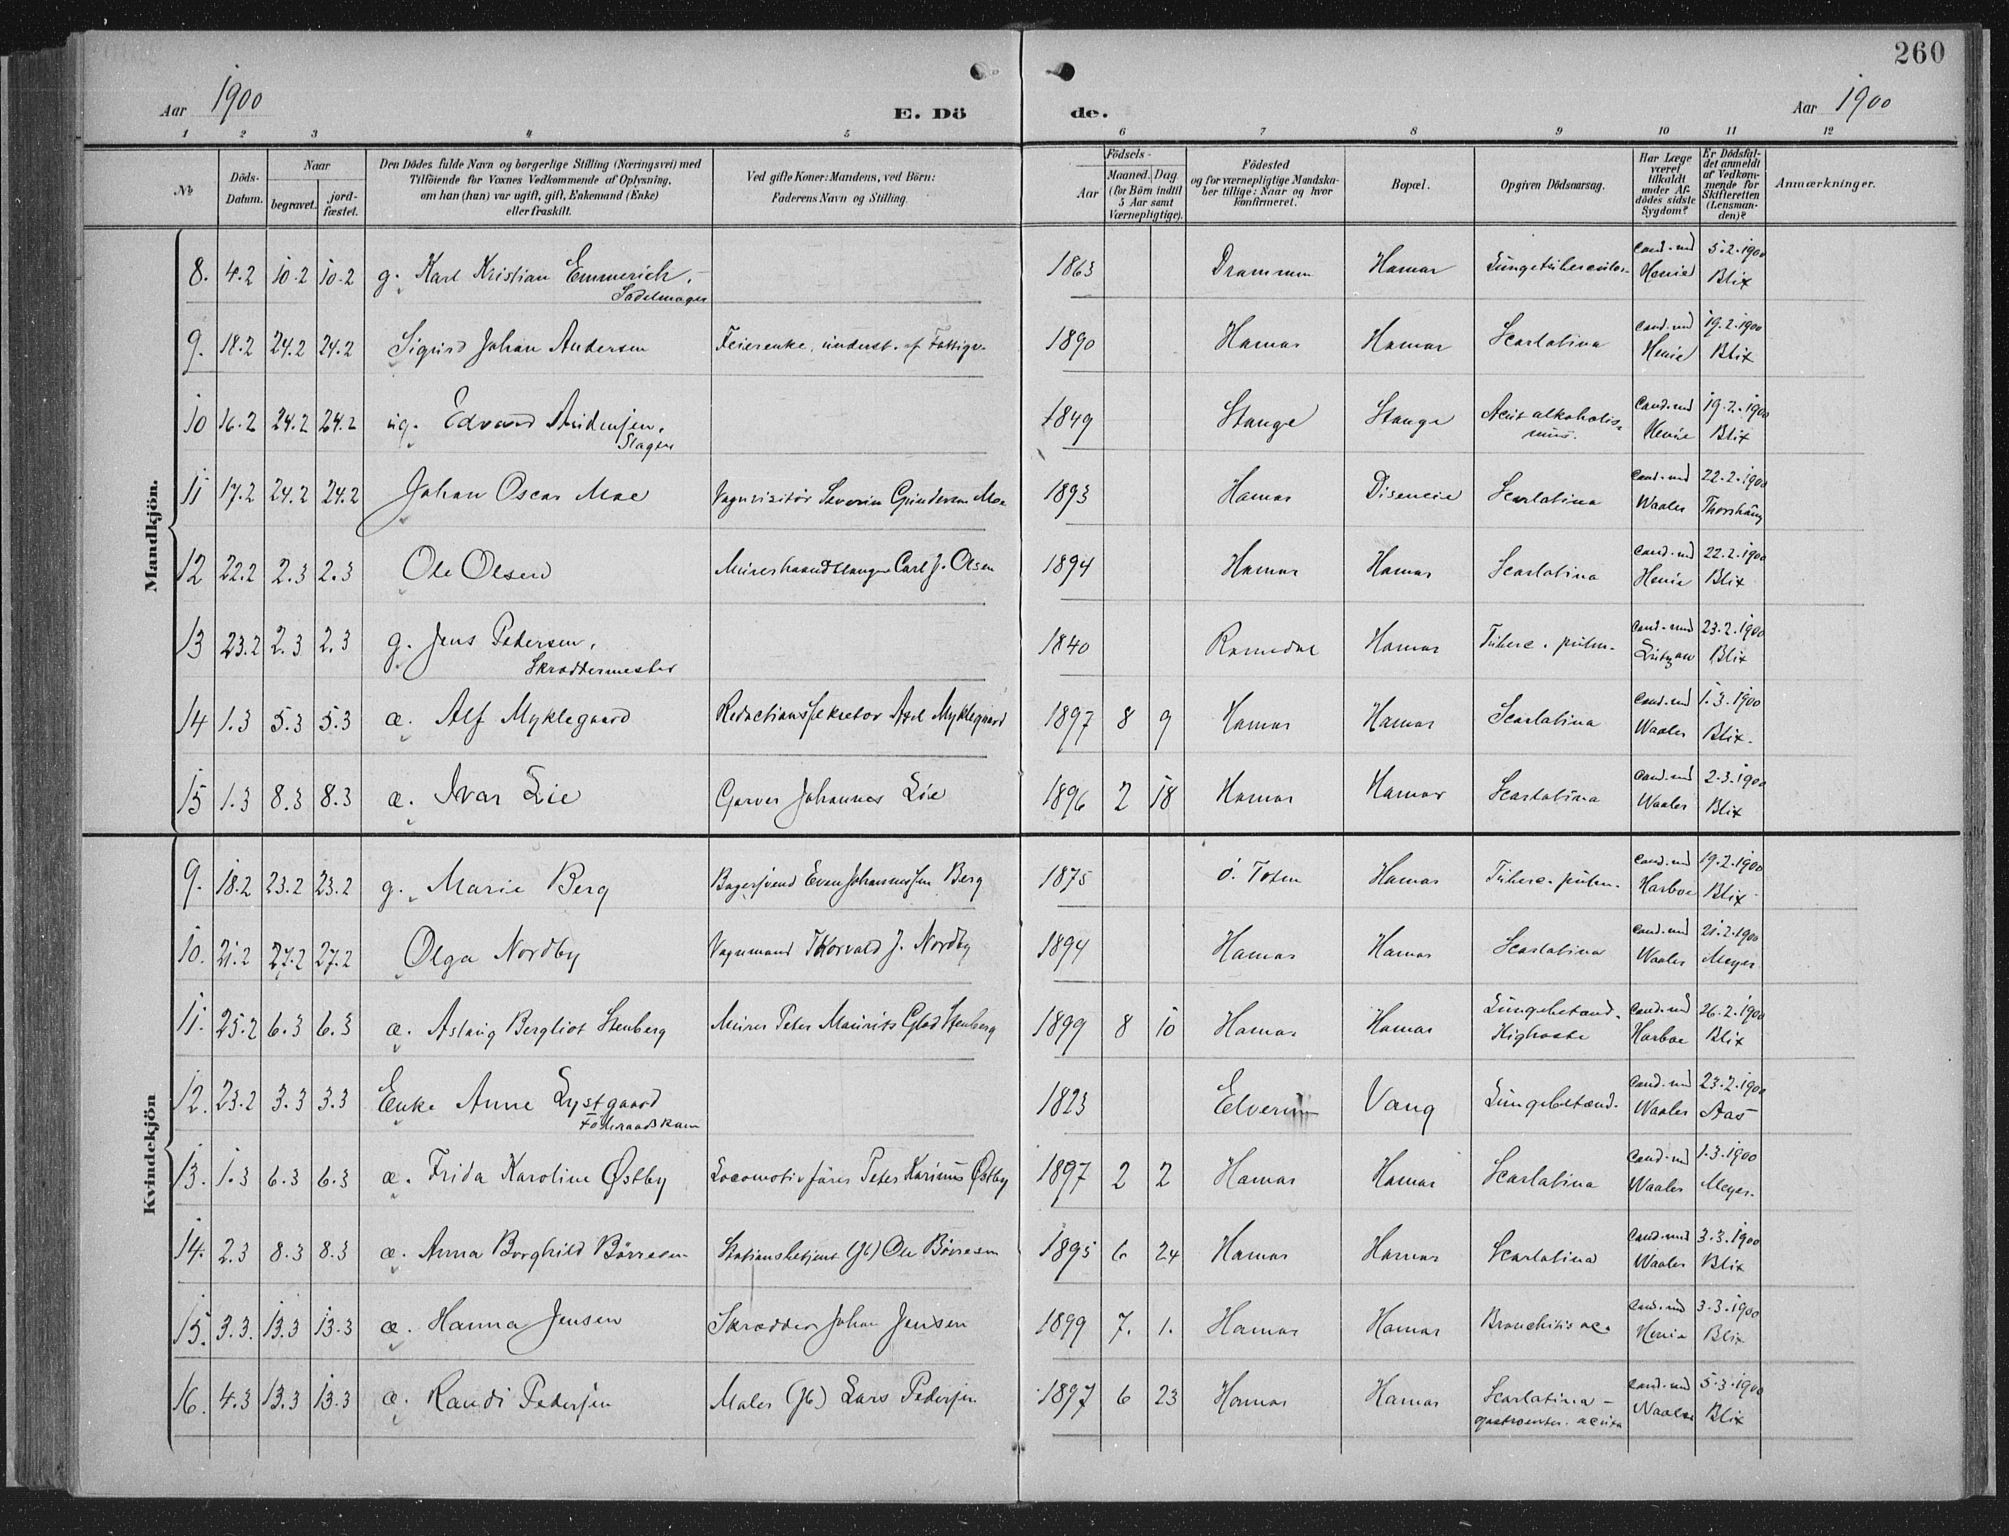 260
Aar 1900 E. Dö de. Aar 1900
1 2 3 4 5 6 7 8 9 10 11 12
No
Döds-Datum.
Naar
begravet.
jord-fæstet.
Den Dödes fulde Navn og borgerlige Stilling (Næringsvei) med
Tilföiende for Voxnes Vedkommende af Oplysning,
om han (hun) var ugift, gift, Enkemand (Enke)
eller fraskilt.
Ved gifte Koner: Mandens, ved Börn:
Faderens Navn og Stilling.
Födsels-
Aar
Maaned. Dag
(for Börn indtil
5 Aar samt
Værnepligtige).
Födested
og for værnepligtige Mandska-
ber tillige: Naar og hvor
konfirmeret.
Bopæl.
Opgiven Dödsaarsag.
Har Læge
været
tilkaldt
under Af-
dödes sidste
Sygdom?
Er Dödsfal-
det anmeldt
af Vedkom-
mende for
Skifteretten
(Lensman-
den)?
Anmærkninger.
Mandkjön.
8. 4.2 10.2 10.2 g. Karl Kristian Emmerich, Sadelmager 1863 Drammen Hamar Lungetuberculos- cand. med Henie 5.2.1900 Blix
9. 18.2 24.2 24.2 Sigurd Johan Andersen Feierenke, underst. af Fattigv. 1890 Hamar Hamar Scarlatina cand. med Henie 19.2.1900 Blix
10 16.2 24.2 24.2 ug. Edvard Andersen, Slagter 1849 Stange Stange Acut alkoholis-mus. cand. med Henie 19.2.1900 Blix
11 17.2 24.2 24.2 Johan Oscar Moe Vognvisitör Severin Gundersen Moe 1893 Hamar Diseneie Scarlatina cand. med Waaler 22.2.1900 Thorshaug
12 22.2 2.3 2.3 Ole Olsen Murerhaandlanger Carl J. Olsen 1894 Hamar Hamar Scarlatina cand. med Henie 22.2.1900 Blix
13 23.2 2.3 2.3 g. Jens Pedersen, Skræddermester 1840 Romedal Hamar Tuberc. pulm. cand. med Lützow 23.2.1900 Blix
14 1.3 5.3 5.3 æ. Alf Myklegaard Redactionssekretær Axel Myklegaard 1897 8 9 Hamar Hamar Scarlatina cand. med Waaler 1.3.1900 Blix.
15 1.3 8.3 8.3 æ. Ivar Lie Garver Johannes Lie 1896 2 18 Hamar Hamar Scarlatina cand. med Waaler 2.3.1900 Blix
Kvindekjön
9. 18.2 23.2 23.2 g. Marie Berg Bagersvend Even Johannessen Berg 1875 Ö. Toten Hamar Tuberc. pulm. cand. med Harboe 19.2.1900 Blix
10. 21.2 27.2 27.2 Olga Nordby Vognmand Thorvald J. Nordby 1894 Hamar Hamar Scarlatina cand. med Waaler 21.2.1900 Meyer
11. 25.2 6.3 6.3 æ. Aslaug Bergliot Stenberg Murer Peter Maurits Glad Stenberg 1899 8 10 Hamar Hamar Lungebetænd. Kighoste cand. med Harboe 26.2.1900 Blix
12. 23.2 3.3 3.3 Enke Anne Lystgaard Föderaadskone 1823 Elverum Vang Lungebetænd. cand. med Waaler 23.2.1900 Aas
13. 1.3 6.3 6.3 æ. Frida Karoline Østby Locomotivförer Peter Karinus Østby 1897 2 2 Hamar Hamar Scarlatina cand. med Waaler 1.3.1900 Meyer.
14. 2.3 8.3 8.3 æ. Anna Borghild Börresen Stationsbetjent (Jb) Ole Börresen 1895 6 24 Hamar Hamar Scarlatina cand. med Waaler 3.3.1900 Blix
15. 3.3. 13.3 13.3 æ. Hanna Jensen Skrædder Johan Jensen 1899 7. 1. Hamar Hamar Bronchitis ac. cand. med Henie 3.3.1900 Blix
16. 4.3 13.3 13.3 æ. Randi Pedersen Maler (Jb) Lars Pedersen 1897 6 23 Hamar Hamar Scarlatina - gastroenter. acuta cand. med Waaler 5.3.1900 Blix